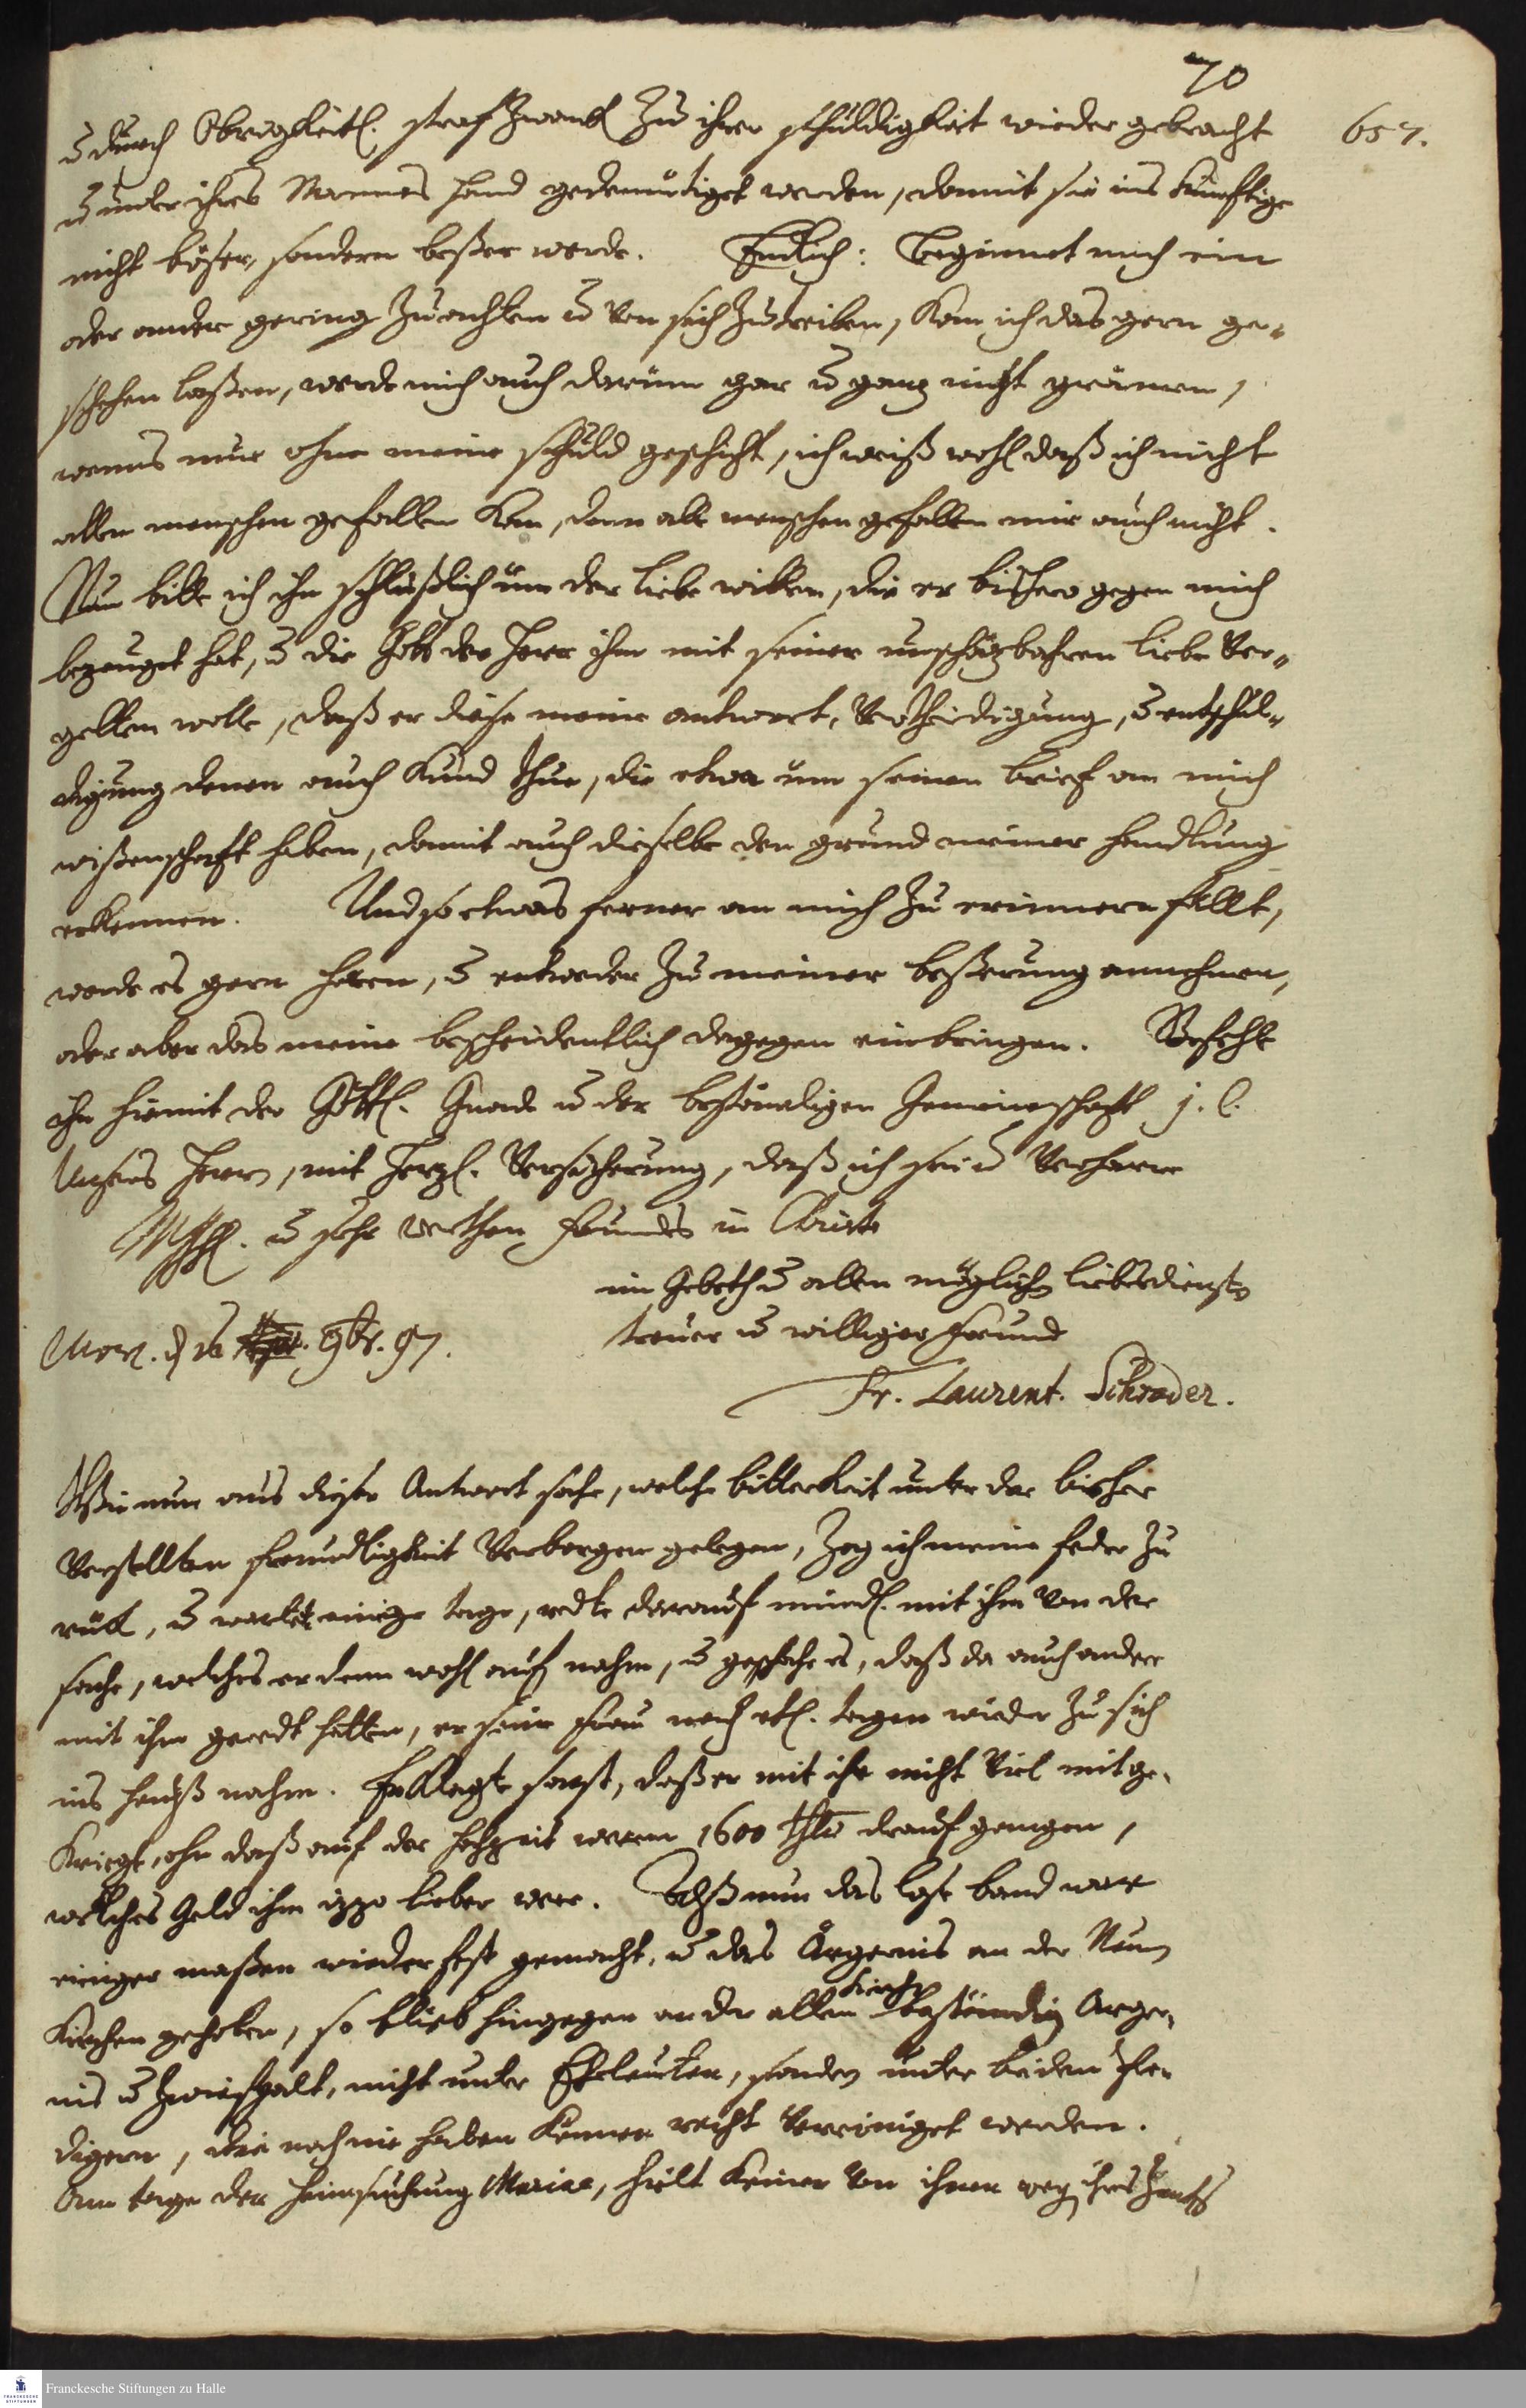 70
657.
u durch Obrigkeitl. straf Zwank zu ihrer schuldigkeit wieder gebracht
u unter ihres Mannes hand gedemütiget werden, damit sie ins künftige
nicht böser, sondern beßer werde. Endlich: Beginnet mich ein
oder ander gering zu achten u von sich zu treiben, kan ich das gern ge-
schehen laßen, werde mich auch darüm gar u ganz nicht grämen,
wenns nur ohne meine schuld geschicht, ich weiß wohl daß ich nicht
allen menschen gefallen kan, denn alle menschen gefallen mir auch nicht.
Nun bitte ich ihn schlüßlich üm der liebe willen, die er bishero gegen mich
bezeuget hat, u die Gott der Herr ihm mit seiner unschäzbahren liebe ver-
gelten wolle, daß er diese meine antwort, vertheidigung, u entschul-
digung denen auch kund thue, die etwa üm seinen brief an mich
wißenschaft haben, damit auch dieselbe den grund meiner handlung
erkennen. Und so etwas ferner an mich zu erinnern fället,
werde es gern hören, u entweder zu meiner beßerung annehmen,
oder aber das meine bescheidentlich dagegen einbringen. Befehle
ihn hiemit der Göttl. Gnade u der beständigen Gemeinschaft J. C.
Unsers Herrn, mit herzl. versicherung, daß ich sei u verharre
u sehr werthen freundes in Christo
im Gebeth u allen möglichen liebesdiensten
treuer u williger freund
9br. 97.
Fr. Laurent. Schrader.
Wie nun aus dieser Antwort sahe, welche bitterkeit unter der bisher
verstellten freundligkeit verborgen gelegen, zog ich meine feder zu
rük, u wartete einige tage, redte darauf mündl. mit ihm von der
sache, welches er denn wohl auf nahm, u geschahe es, daß da auch andere
mit ihm geredt hatten, er seine frau nach etl. tagen wieder zu sich
ins hauß nahm. Er klagte sonst, daß er mit ihr nicht viel mitge-
kriegt, ohn daß auf der hochzeit waren 1600 thlr drauf gangen,
welches Geld ihm izzo lieber wär. nun das lose band war
einiger maßen wieder fest gemacht, u das Ärgernis an der Neuen
Kirchen gehoben, so blieb hingegen an der alten Kirche beständig Ärger-
nis u zwiespalt, nicht unter Eheleuten, sondern unter beiden Pre-
digern, die noch nie haben können recht vereiniget werden.
Am tage der heimsuchung Mariae, hielt keiner von ihnen weg. ihres
Franckesche Stiftungen zu Halle